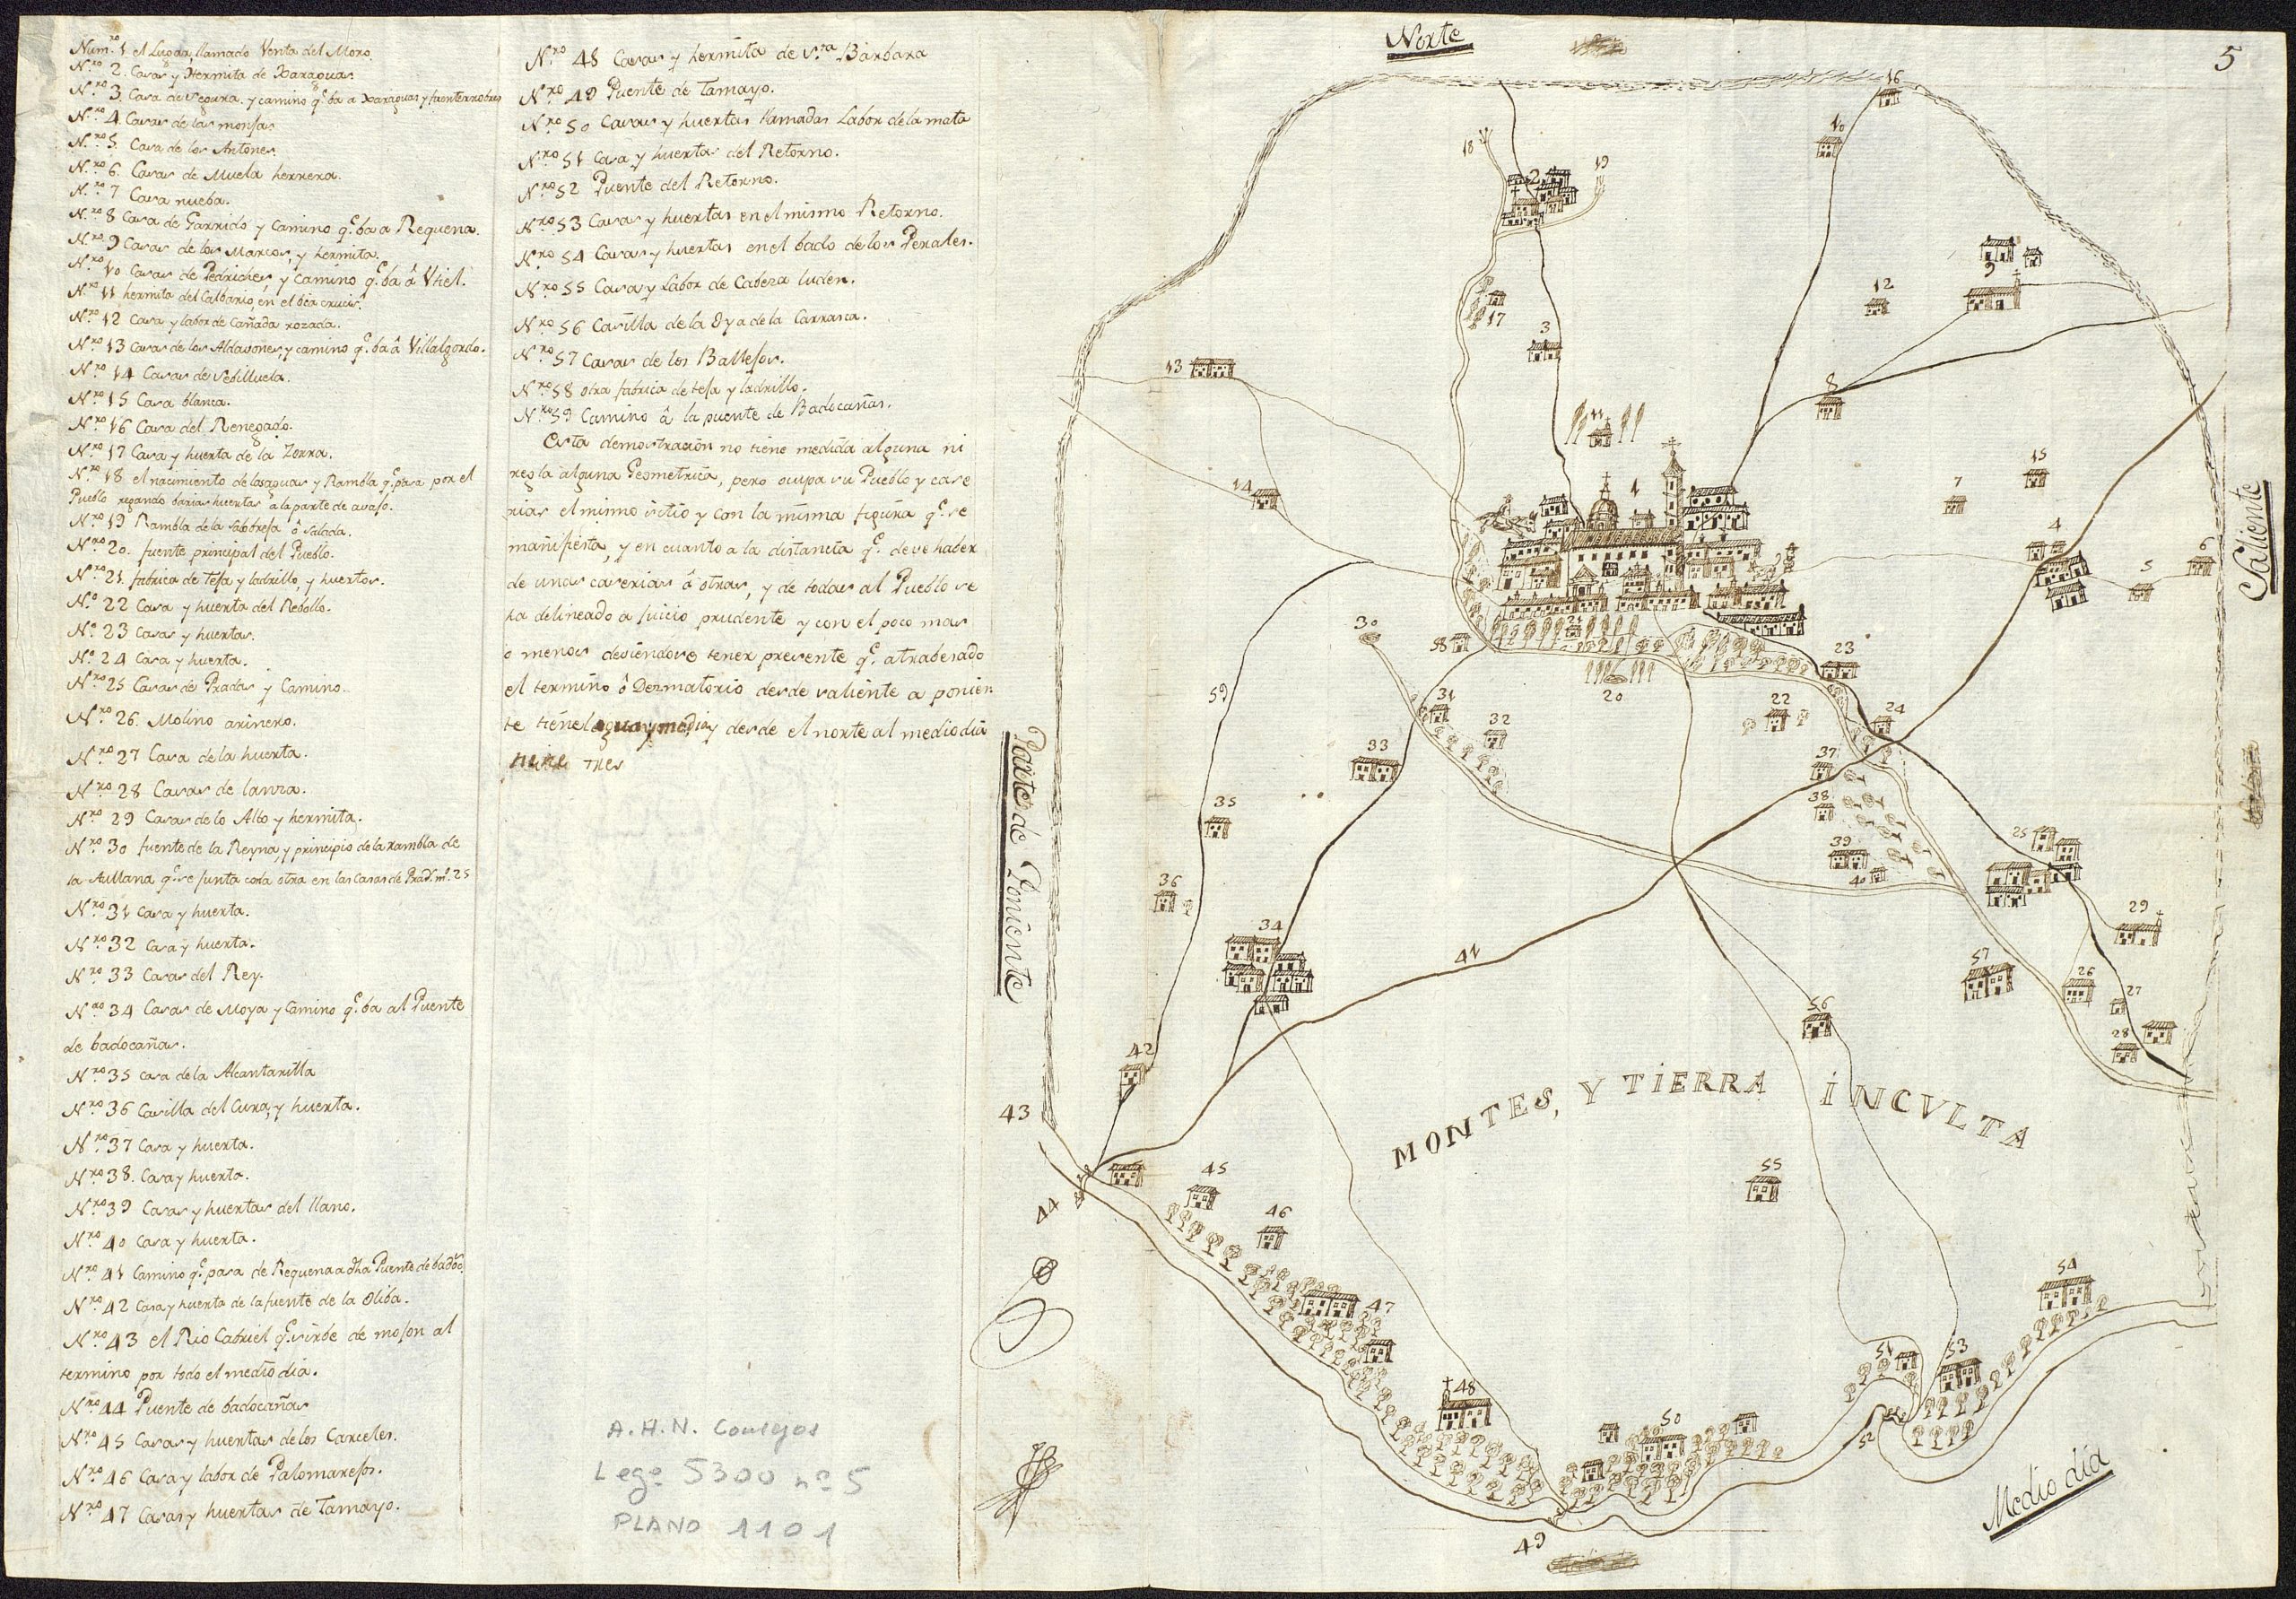 Num.ro 1 el Lugar, llamado Venta del Moro
N.ro 2. Casas y Hermita de Xaraguas
N.ro 3. Casa de Segura. y camino q.e ba a Xaraguas y fuenterrobres
N.ro 4. Casas de las monjas
N.ro 5. Casa de los Antones.
N.ro 6. Casas de Muela herrera.
N.ro 7 Casa nueba.
N.ro 8 Casa de Garrido y camino q.e ba a Requena.
N.ro 9 Casas de los Marcos, y hermita.
N.ro 10 Casas de Pedriches, y camino q.e ba â Vtiel.
N.ro 11 hermita del Calbario, en el bia crucis.
N.ro 12 Casa y labor de Cañada rozada.
N.ro 13 Casas de los Aldavones, y camino q.e ba â Villalgordo.
N.ro 14 Casas de Sebilluela.
N.ro 15 Casa blanca.
N.ro 16 Casa del Renegado.
N.ro 17 Casa y huerta de la Zorra.
N.ro 18 el nacimiento de las aguas y Rambla q.e pasa por el
Pueblo regando barias huertas â la parte de avajo.
N.ro 19 Rambla de la ô Salada.
N.ro 20. fuente principal del Pueblo.
N.ro 21. fabrica de teja y ladrillo, y huertos.
N.o 22 Casa y huerta del Rebollo.
N.o 23 Casas y huertas.
N.o 24 Casa y huerta.
N.ro 25 Casas de Pradas y Camino.
N.ro 26. Molino arinero.
N.ro 27 Casa de la huerta.
N.ro 28 Casas de lanza.
N.ro 29 Casas de lo Alto y hermita.
N.ro 30 fuente de la Reyna, y principio de la rambla de
la Aullana q.e se junta con la otra en las Casas de Prad.s m.o 25
N.ro 31 Casa y huerta.
N.ro 32 Casa y huerta.
N.ro 33 Casas del Rey.
N.ro 34 Casas de Moya y Camino q.e ba al Puente
de badocañas.
N.ro 35 casa de la Alcantarilla
N.ro 36 Casilla del Cura, y huerta.
N.ro 37 Casa y huerta.
N.ro 38. Casa y huerta.
N.ro 39 Casas y huertas del llano.
N.ro 40 Casa y huerta.
N.ro 41 Camino q.e pasa de Requena a dha Puente de badoc.
N.ro 42 Casa y huerta de la fuente de la Oliba.
N.ro 43 el Rio Cabriel q.e sirbe de mojon al
termino por todo el medio dia.
N.ro 44 Puente de badocañas
N.ro 45 Casas y huertas de los Carceles.
N.ro 46 Casa y labor de Palomarejos.
N.ro 47 Casas y huertas de Tamayo.
N.ro 48 Casas y hermita de S.ta Barbara
N.ro 49 Puente de Tamayo.
N.ro 50 Casas y huertas llamadas Labor de la mata
N.ro 51 Casa y huertas del Retorno.
N.ro 52 Puente del Retorno.
N.ro 53 Casas y huertas en el mismo Retorno.
N.ro 54 Casas y huertas en el bado de los Perales.
N.ro 55 Casa y Labor de Cabeza luden.
N.ro 56 Casilla de la Oya de la Carrasca.
N.ro 57 Casas de los Ballesos.
N.ro 58 otra fabrica de teja y ladrillo.
N.ro 59 Camino â la puente de Badocañas.
Esta demostracion no tiene medida alguna ni
regla alguna Geometrica, pero ocupa su Pueblo y case
rias el mismo sitio y con la misma figura q.e se
manifiesta, y en cuanto a la distancia q.e deve haber
de unas caserias â otras, y de todas al Pueblo se
ha delineado a juicio prudente y con el poco mas
o menos deviendose tener presente q.e atrabesado
el termino ô Dezmatorio desde saliente a ponien
te tiene legua y media y desde el norte al mediodia
tiene tres
A.H.N. Consejos
Leg.o 5300 n.o 5
PLANO 1101
Norte
5
Saliente
Parte de Poniente
Medio dia
MONTES, Y TIERRA INCVLTA
16
10
18
2
19
9
12
17
3
13
8
11
15
14
1
7
4
6
5
30
58
21
23
59
31
20
22
24
32
33
37
35
38
25
39
36
40
29
34
41
57
26
27
56
28
42
43
45
55
44
46
54
47
51
53
48
50
52
49